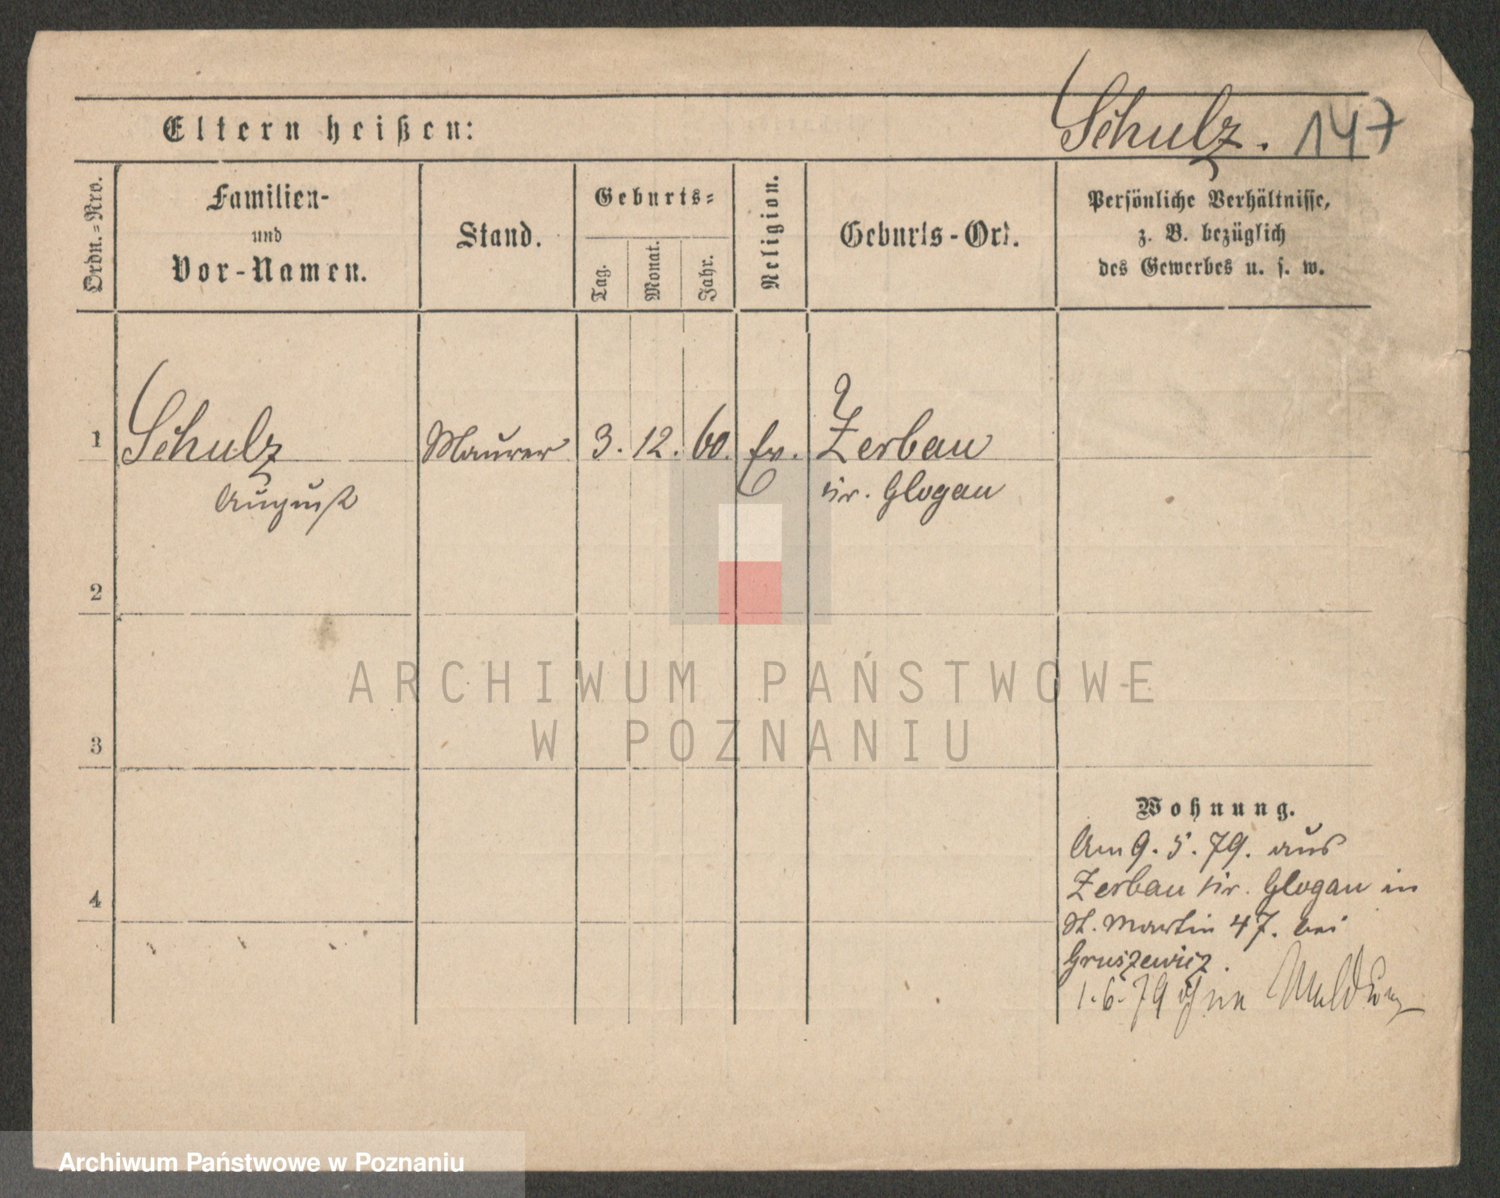 Schulz. 147
Eltern heißen:
Ordn.=Nro.
Familien-
und
Vor-Namen.
Stand.
Geburts=
Tag.
Monat.
Jahr.
Religion.
Geburts-Ort.
Persönliche Verhältnisse,
z. B. bezüglich
des Gewerbes u. s. w.
1 Schulz Maurer 3. 12. 60. ev. Zerbau
August Kr. Glogau
2
3
4
Wohnung.
Am 9. 5. 79. aus
Zerbau Kr. Glogau in
St. Martin 47. bei
Gruszewicz.
1. 6. 79 ohne Meldung
ARCHIWUM PAŃSTWOWE
W POZNANIU
Archiwum Państwowe w Poznaniu